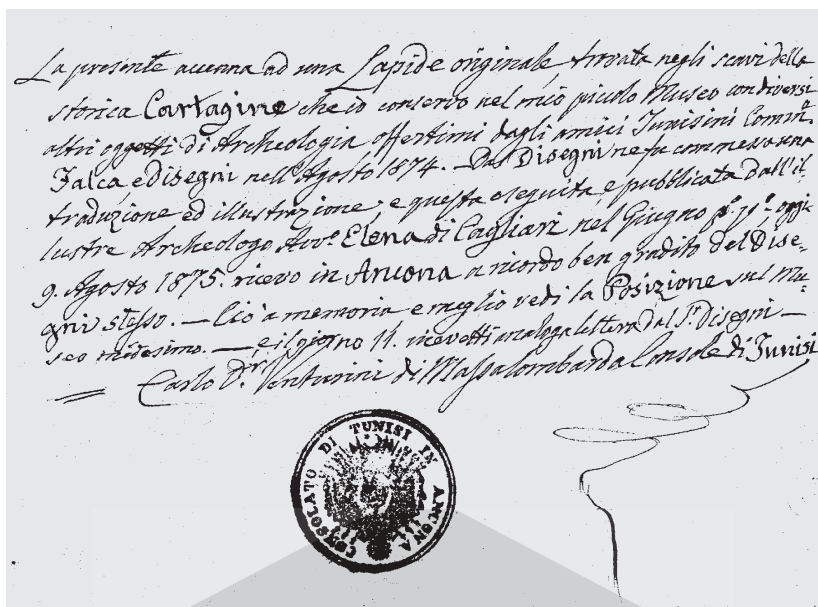 La presente accenna ad una Lapide originale, trovata negli scavi della
storica Cartagine che io conservo nel mio piccolo Museo con diversi
altri oggetti di Archeologia offertimi dagli amici Tunisini Comm.ri
Falca, e Disegni nell'Agosto 1874. — Dal Disegni ne fu commessa una
traduzione ed illustrazione, e questa eseguita e pubblicata dall'il
lustre Archeologo Avv.o Elena di Cagliari nel Giugno oggi
9. Agosto 1875. ricevo in Ancona a ricordo ben gradito del Dise-
gni stesso. — Ciò a memoria e meglio vedi la Posizione sul Mu-
seo medesimo. — e il giorno 11. ricevetti analoga lettera dal Sr. Disegni —
Carlo Dr. Venturini di Massalombarda Console di Tunisi
CONSOLATO DI TUNISI IN ANCONA